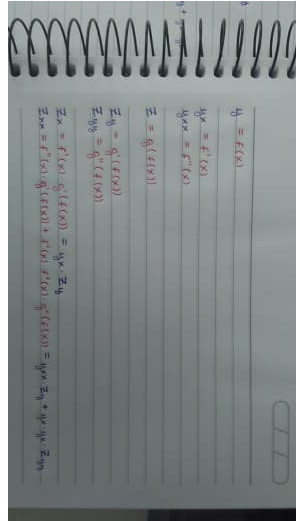 y = f(x)
yx = f'(x)
yxx = f"(x)
z = g(f(x))
zy = g'(f(x))
zyy = g"(f(x))
zx = f'(x) · g'(f(x)) = yx · zy
zxx = f"(x) · g'(f(x)) + f'(x) · f'(x) · g"(f(x)) = yxx · zy + yx · yx · zyy